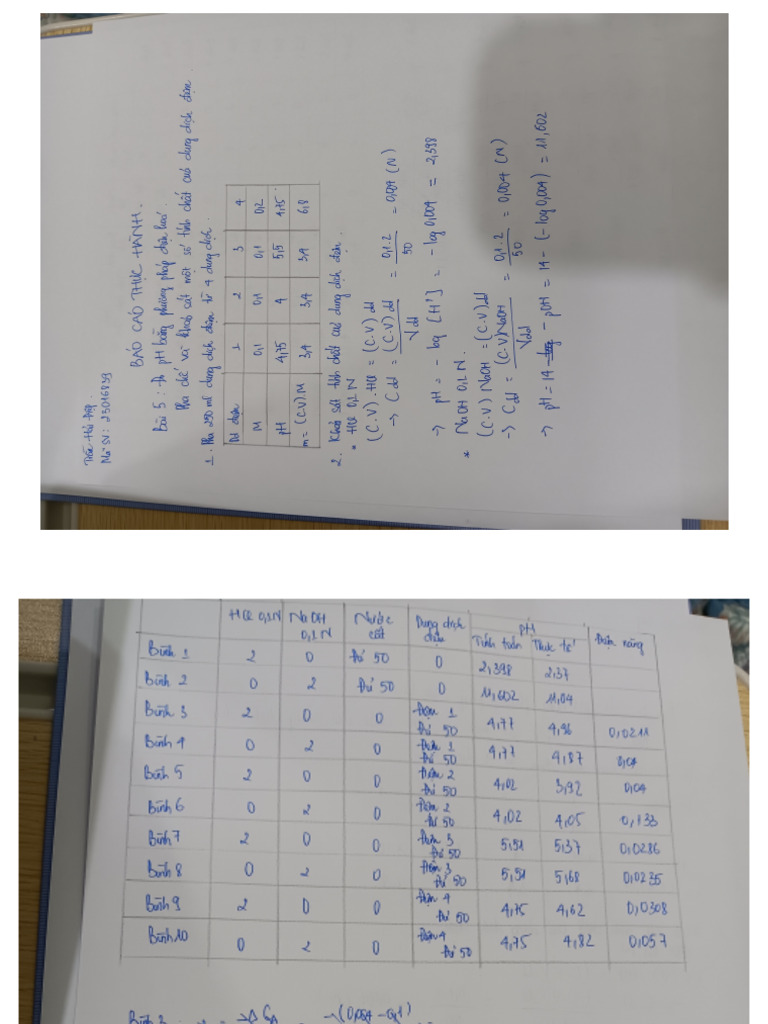 Trần Hải Điệp.
Mã SV: 23016839
BÁO CÁO THỰC HÀNH.
Bài 5: Đo pH bằng phương pháp điện hoá.
Pha chế và khảo sát một số tính chất của dung dịch đệm.
1. Pha 250 ml dung dịch đệm từ 4 dung dịch.
Dd đệm 1 2 3 4
M 0,1 0,1 0,1 0,2
pH 4,75 4 5,5 4,75
m = (C.V).M 3,4 3,4 3,4 6,8
2. Khảo sát tính chất của dung dịch đệm.
* HCl 0,1 N
(C.V).HCl = (C.V) dd
→ Cdd = (C.V) dd / Vdd = 0,1.2 / 50 = 0,004 (N)
→ pH = - log [H⁺] = - log 0,004 = 2,398
* NaOH 0,1 N.
(C.V) NaOH = (C.V) dd
→ Cdd = (C.V)NaOH / Vdd = 0,1.2 / 50 = 0,004 (N)
→ pH = 14 - pOH = 14 - (-log 0,004) = 11,602
HCl 0,1N NaOH 0,1N Nước cất Dung dịch đệm pH Đệm năng
Tính toán Thực tế
Bình 1 2 0 đủ 50 0 2,398 2,37
Bình 2 0 2 đủ 50 0 11,602 11,04
Bình 3 2 0 0 Đệm 1 đủ 50 4,77 4,96 0,0211
Bình 4 0 2 0 Đệm 1 đủ 50 4,77 4,87 0,04
Bình 5 2 0 0 Đệm 2 đủ 50 4,02 3,92 0,04
Bình 6 0 2 0 Đệm 2 đủ 50 4,02 4,05 0,133
Bình 7 2 0 0 Đệm 3 đủ 50 5,51 5,37 0,0286
Bình 8 0 2 0 Đệm 3 đủ 50 5,51 5,68 0,0235
Bình 9 2 0 0 Đệm 4 đủ 50 4,75 4,62 0,0308
Bình 10 0 2 0 Đệm 4 đủ 50 4,75 4,82 0,057